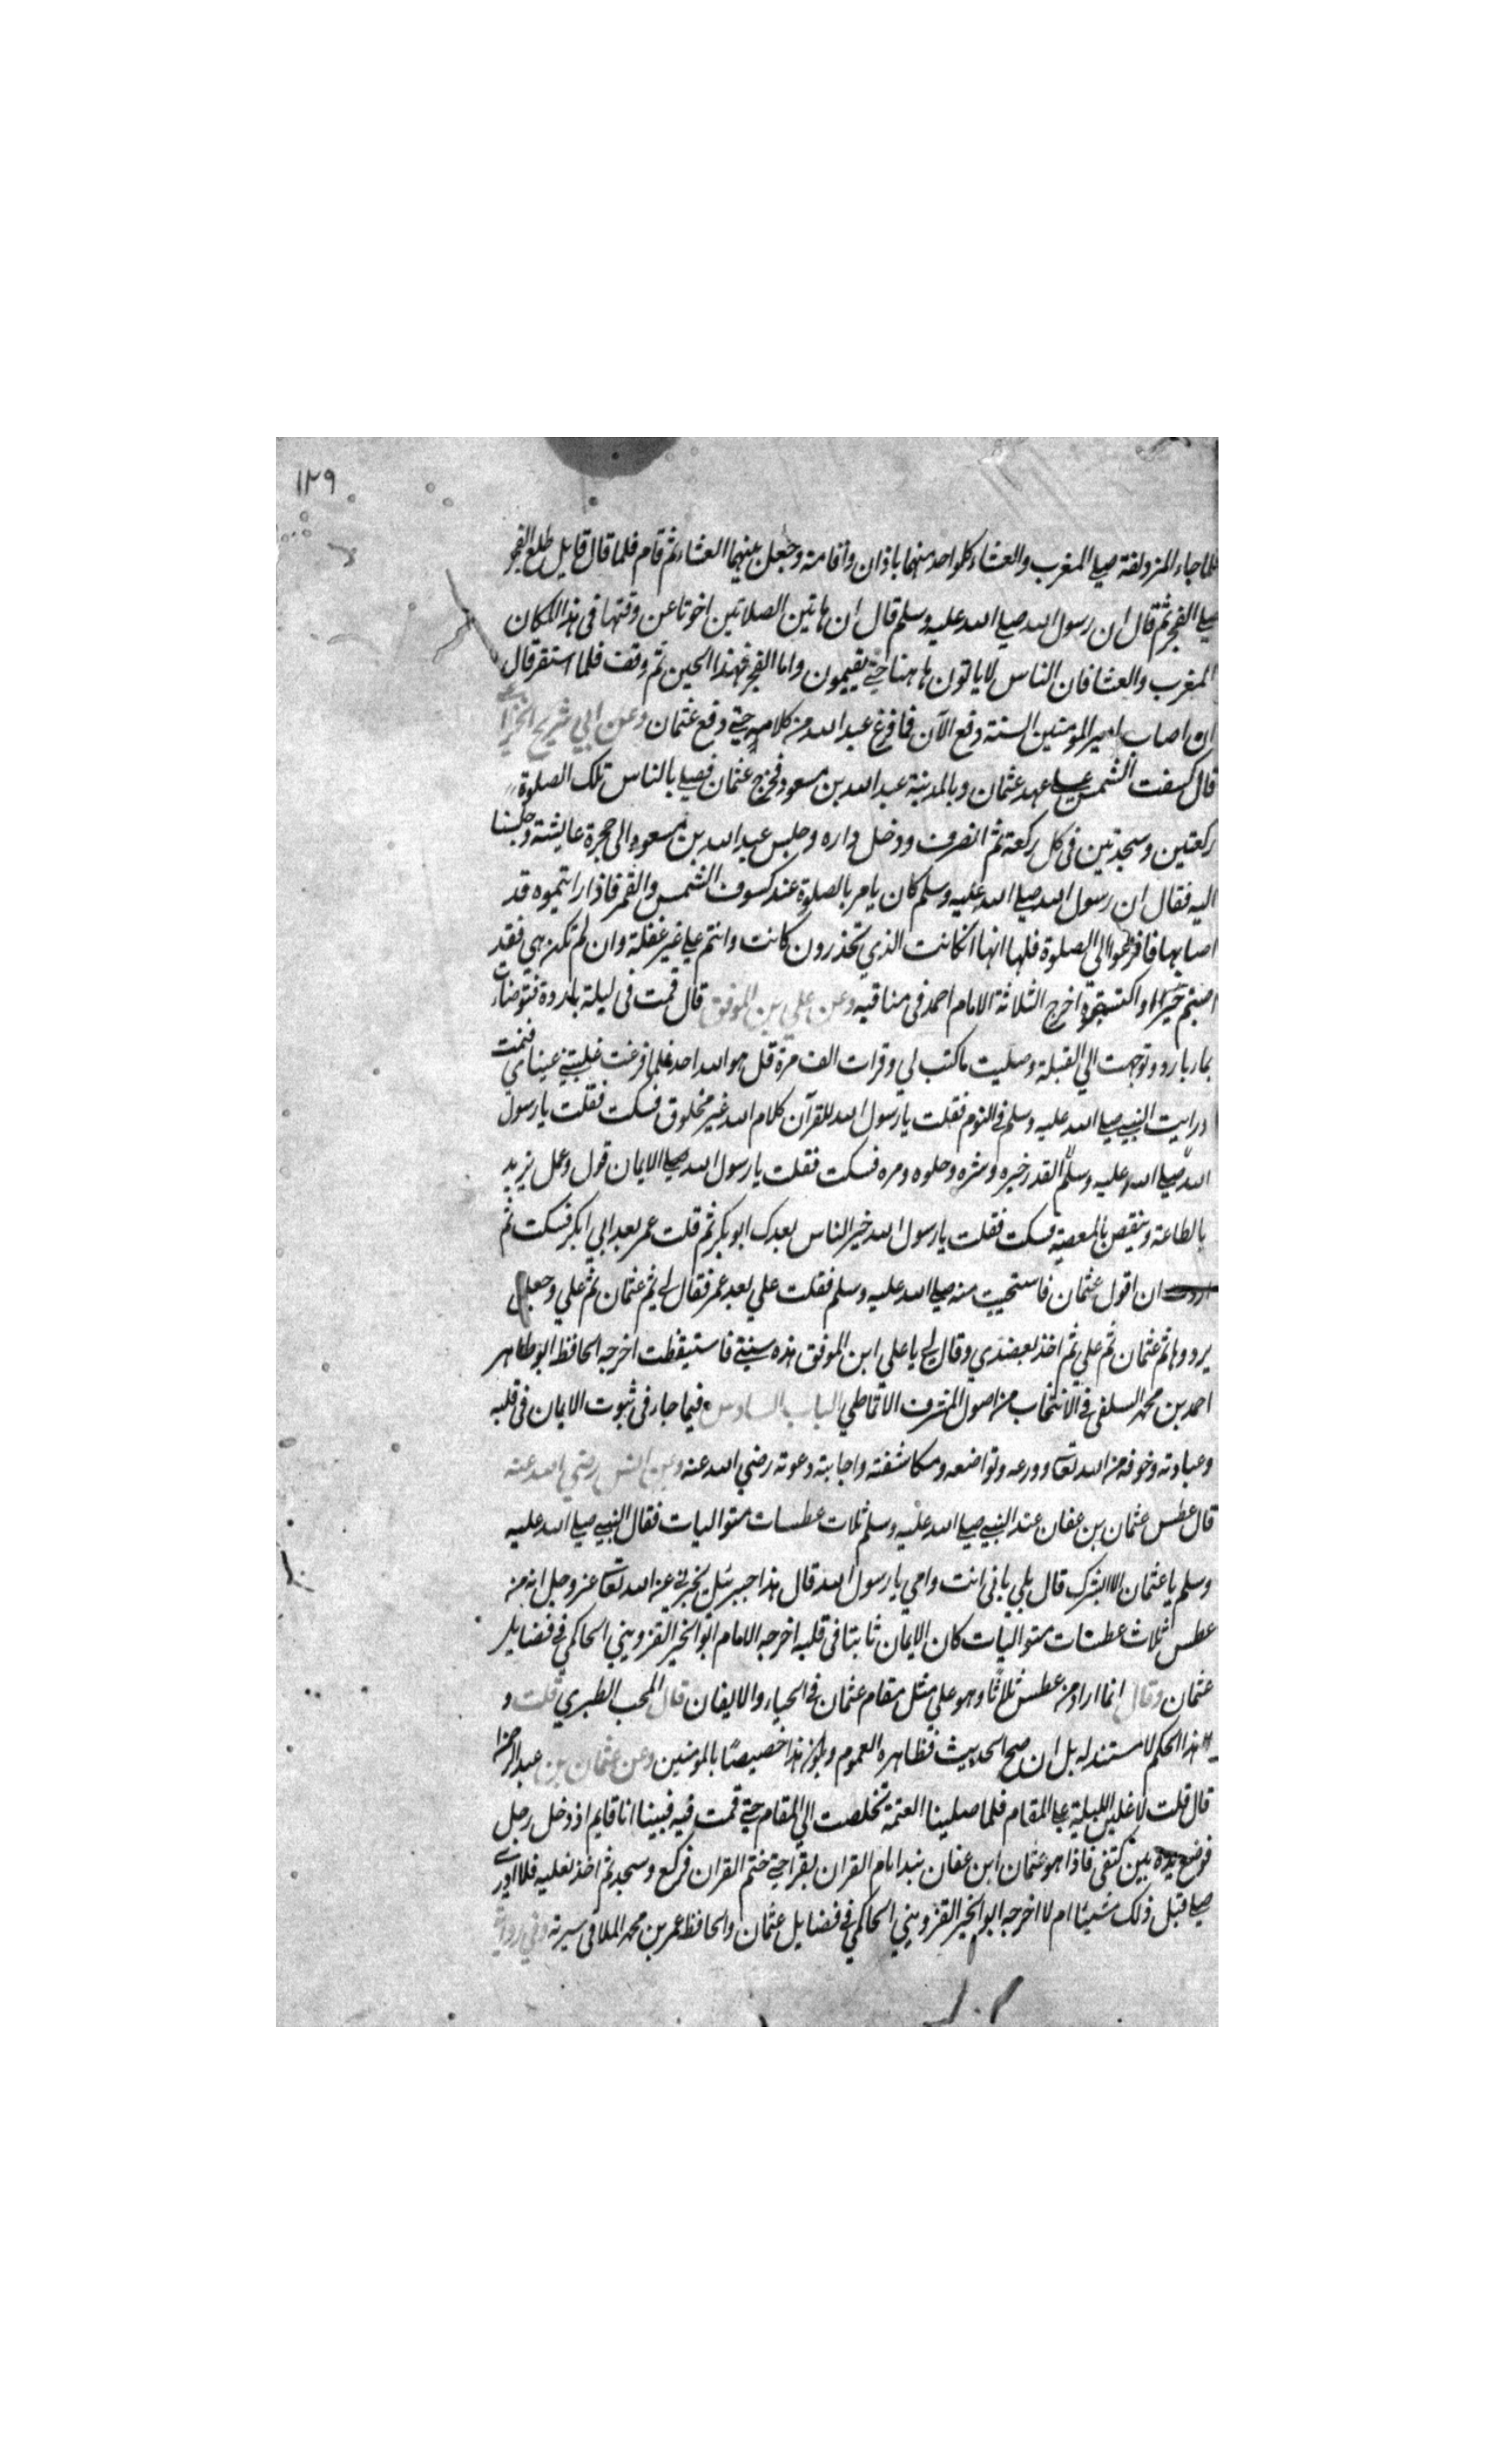 ١٢٩
فلما جاء المزدلفة صلى المغرب والعشاء كلواحد منهما باذان واقامة وجعل بينهما العشاء ثم قام فلما قال قايل طلع الفجر
صلى الفجر ثم قال ان رسول الله صلى الله عليه وسلم قال ان هاتين الصلاتين اخرتا عن وقتها فى هذا المكان
المغرب والعشا فان الناس لا ياتون هاهنا حتى يقيمون واما الفجر فهذا الحين ثم وقف فلما استقر قال
ان اصاب امير المومنين السنة دفع الآن فما فرغ عبد الله من كلامه حتى دفع عثمان وعن ابي شريح الخزاعى
قال كسفت الشمس على عهد عثمان وبالمدينة عبد الله بن مسعود فخرج عثمان فصلى بالناس تلك الصلوة
ركعتين وسجدتين فى كل ركعة ثم انصرف ودخل داره وجلس عبد الله بن مسعود الى حجرة عايشة وجلسنا
اليه فقال ان رسول الله صلى الله عليه وسلم كان يامر بالصلوة عند كسوف الشمس والقمر فاذا رايتموه قد
اصابهما فافزعوا الى الصلوة فلها انها انكانت الذي تحذرون كانت وانتم على غير غفلة وان لم تكن هي فقد
اصبتم خيرا او اكتسبتموه اخرج الثلاثة الامام احمد فى مناقبه وعن علي بن الموفق قال قمت فى ليلة باردة فتوضات
بماء بارد وتوجهت الى القبلة وصليت ما كتب لي وقرات الف مرة قل هو الله احد فلما فرغت غلبتنى عيناي فنمت
فرايت النبي صلى الله عليه وسلم فى النوم فقلت يا رسول الله القرآن كلام الله غير مخلوق فسكت فقلت يا رسول
الله صلى الله عليه وسلم القدر خيره وشره وحلوه ومره فسكت فقلت يا رسول الله صلى الايمان قول وعمل يزيد
بالطاعة وينقص بالمعصية فسكت فقلت يا رسول الله خير الناس بعدك ابو بكر ثم قلت عمر بعد ابي بكر فسكت ثم
اردت ان اقول عثمان فاستحييت منه صلى الله عليه وسلم فقلت علي بعد عمر فقال لى ثم عثمان ثم علي وجعل
يرددها ثم عثمان ثم علي ثم اخذ بعضدي وقال لى يا علي ابن الموفق هذه سنتى فاستيقظت اخرجه الحافظ ابو طاهر
احمد بن محمد السلفى فى الانتخاب من اصول المشرف الانماطي الباب السادس فيما جاء فى ثبوت الايمان فى قلبه
وعبادته وخوفه من الله تعالى وورعه وتواضعه ومكاشفته واجابته دعوته رضي الله عنه وعن انس رضي الله عنه
قال عطس عثمان بن عفان عند النبي صلى الله عليه وسلم ثلاث عطسات متواليات فقال النبي صلى الله عليه
وسلم يا عثمان الا ابشرك قال بلى بابى انت وامي يا رسول الله قال هذا جبريل يخبرنى عن الله تعالى عز وجل انه من
عطس ثلاث عطسات متواليات كان الايمان ثابتا فى قلبه اخرجه الامام ابو الخير القزويني الحاكمي فى فضايل
عثمان وقال انما اراد من عطس ثلاثا وهو على مثل مقام عثمان فى الحياء والايقان قال المحب الطبري قلت و
هذا الحكم لا مستند له بل ان صح الحديث فظاهره العموم ويكون هذا خصيصا بالمومنين وعن عثمان بن عبد الرحمن
قال قلت لاغلبن الليلة على المقام فلما صلينا العتمة تخلصت الى المقام حتى قمت فيه فبينا انا قايم اذ دخل رجل
فوضع يده بين كتفى فاذا هو عثمان ابن عفان فبدا بام القران يقرا حتى ختم القران فركع وسجد ثم اخذ نعليه فلا ادرى
صلى قبل ذلك شيئا ام لا اخرجه ابو الخير القزويني الحاكمي فى فضايل عثمان والحافظ عمر بن محمد الملا فى سيرته وفي رواية